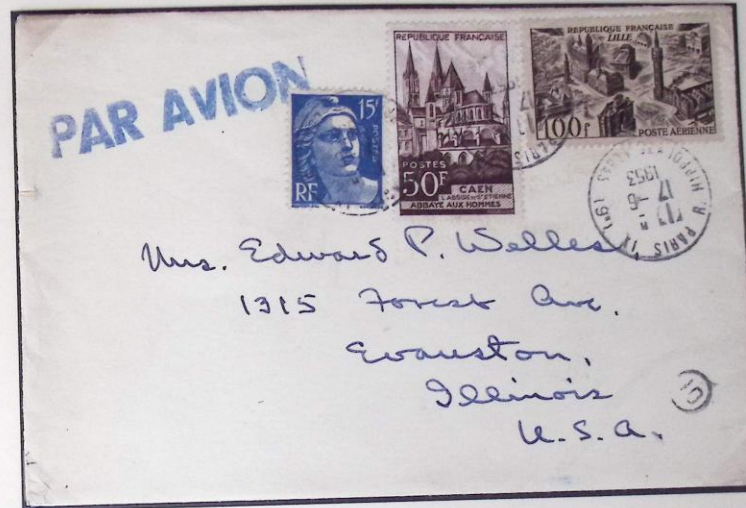 PAR AVION
15F
POSTES
RF
REPUBLIQUE FRANÇAISE
POSTES
50F
CAEN
L'ABSIDE DE ST ETIENNE
ABBAYE AUX HOMMES
REPUBLIQUE FRANÇAISE
LILLE
100F
POSTE AÉRIENNE
PARIS
17
1953
Mrs. Edward P. Welles
1315 Forest Ave.
Evanston,
Illinois
U.S.A.